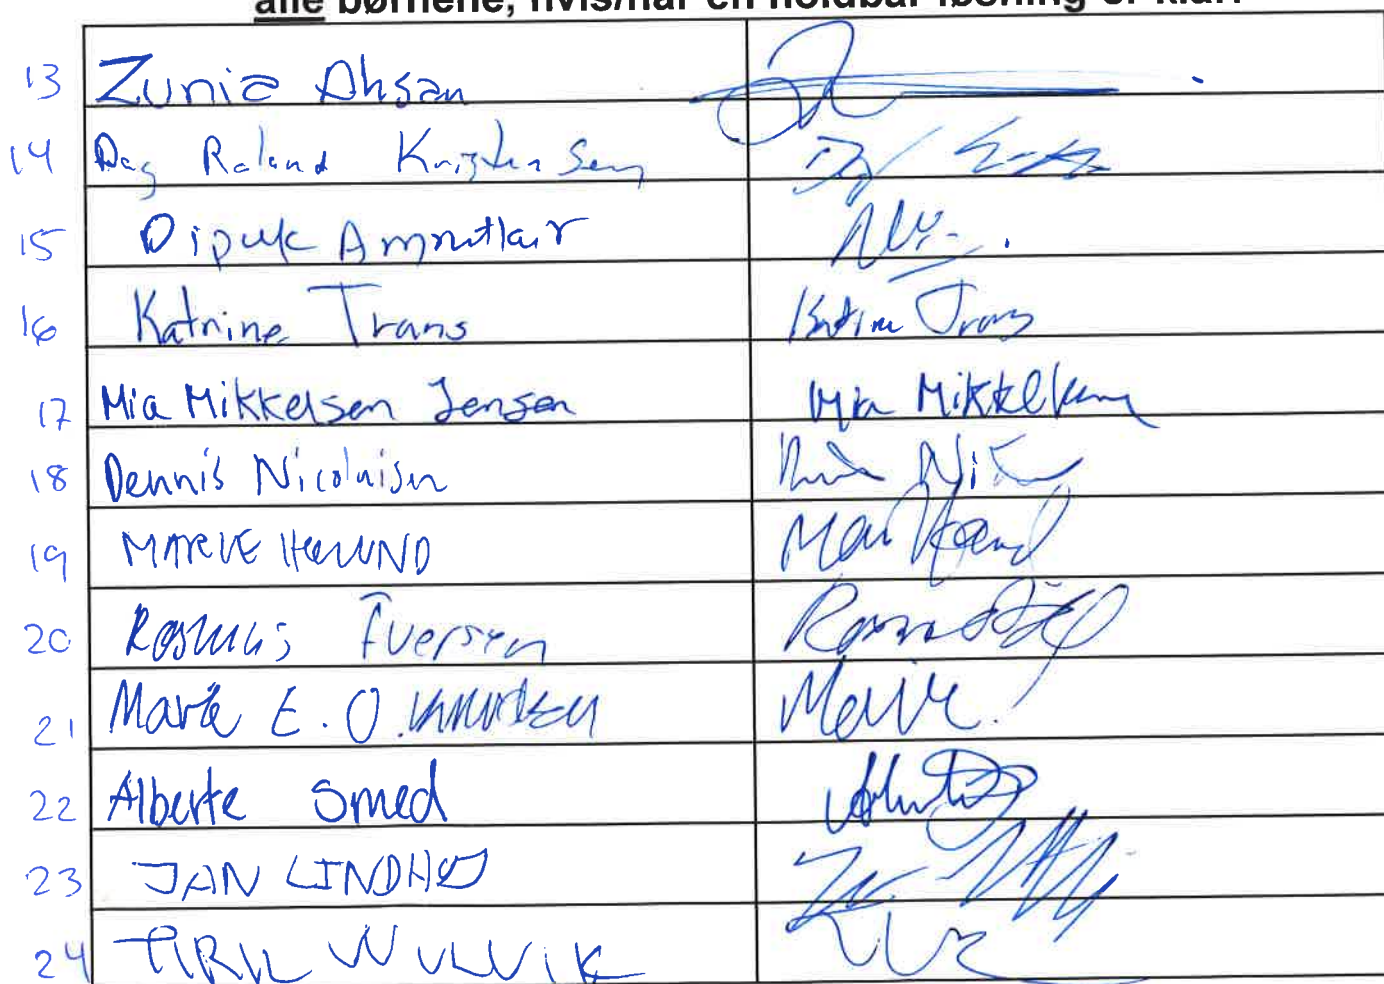 alle børnene, hvis/når en holdbar løsning er klar.
13 Zunia Ahsan
14 Dag Roland Kristensen
15 Dipak Amrutkar
16 Katrine Trans Katrine Trans
17 Mia Mikkelsen Jensen Mia Mikkelsen
18 Dennis Nicolaisen
19 MARIE HØLUND
20 Rasmus Iversen
21 Marie E. O. KNUDSEN Marie
22 Alberte Smed
23 JAN LINDHØJ
24 TIRIL WULVIK